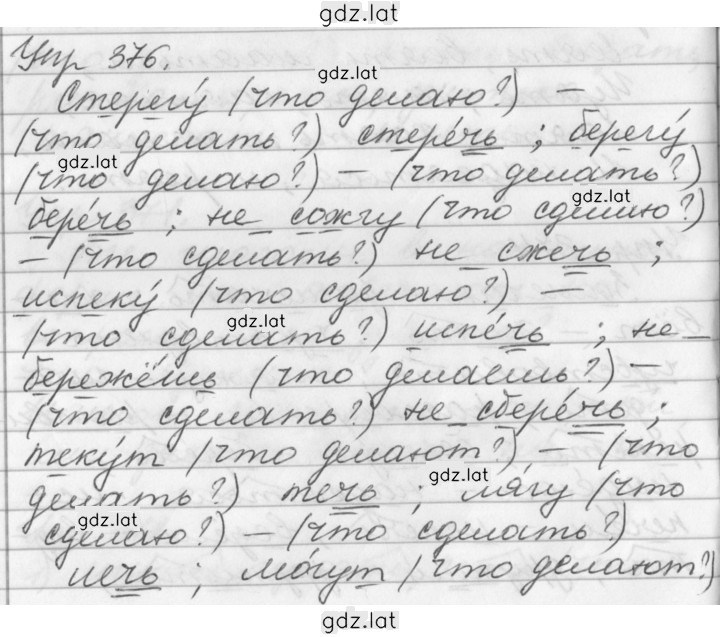 gdz.lat
Упр 376.
gdz.lat
Стерегу́ (что делаю?) –
(что делать?) стере́чь ; берегу́
gdz.lat
(что делаю?) – (что делать?)
бере́чь ; не сожгу (что сделаю?)
– (что сделать?) не сжечь ;
испеку́ (что сделаю?) –
gdz.lat
(что сделать?) испе́чь ; не
бережёшь (что делаешь?) –
(что сделать?) не сбере́чь ;
теку́т (что делают?) – (что
gdz.lat
делать?) течь ; ля́гу (что
gdz.lat
сделаю?) – (что сделать?)
лечь ; мо́гут (что делают?)
gdz.lat